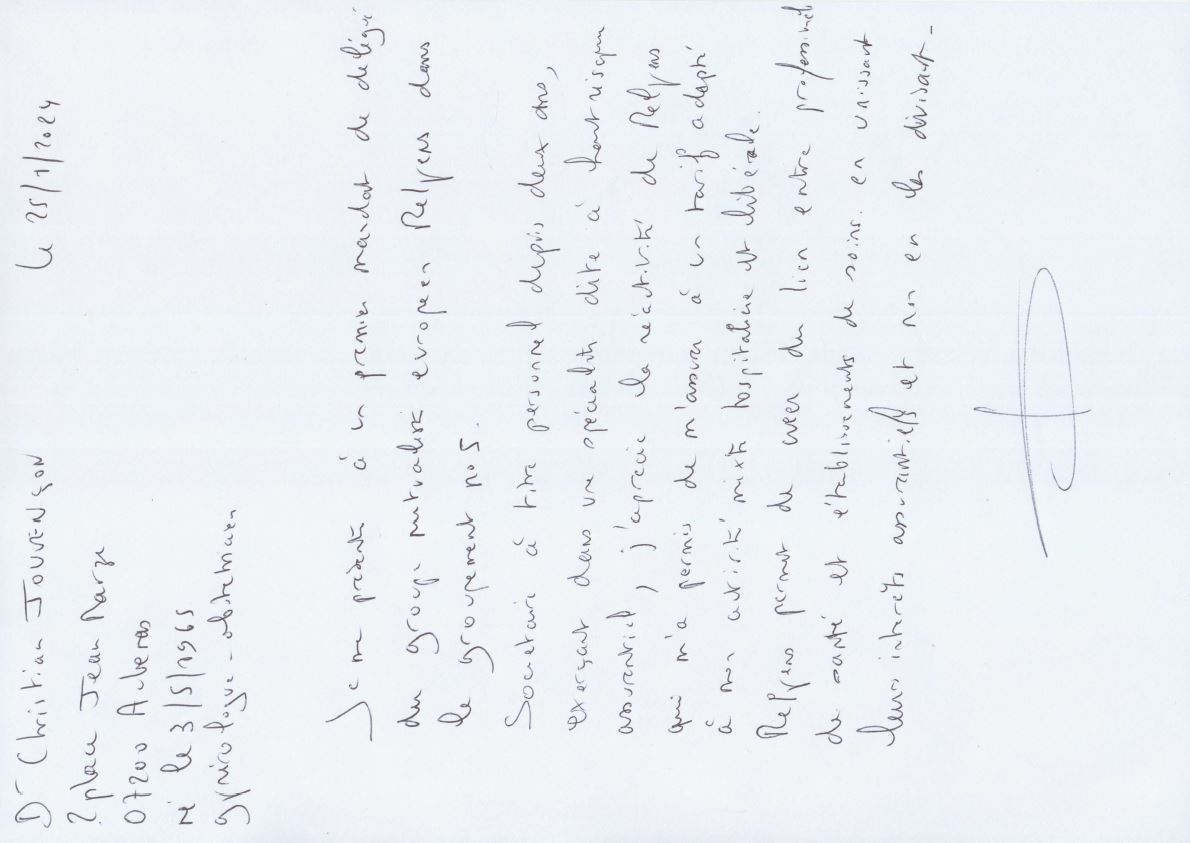 Dr Christian JOUVENÇON
Le 25/1/2024
2 place Jean Marze
07200 Aubenas
né le 3/5/1965
gynécologue - obstétricien
Je me présente à un premier mandat de délégué
du groupe mutualiste européen Relyens dans
le groupement no 5.
Sociétaire à titre personnel depuis deux ans,
exerçant dans une spécialité dite à haut risque
assurantiel, j'apprécie la réactivité de Relyens
qui m'a permis de m'assurer à un tarif adapté
à mon activité mixte hospitalière et libérale.
Relyens permet de créer du lien entre professionnel
de santé et établissements de soins. en unissant
leurs intérêts assurantiels et non en les divisant.